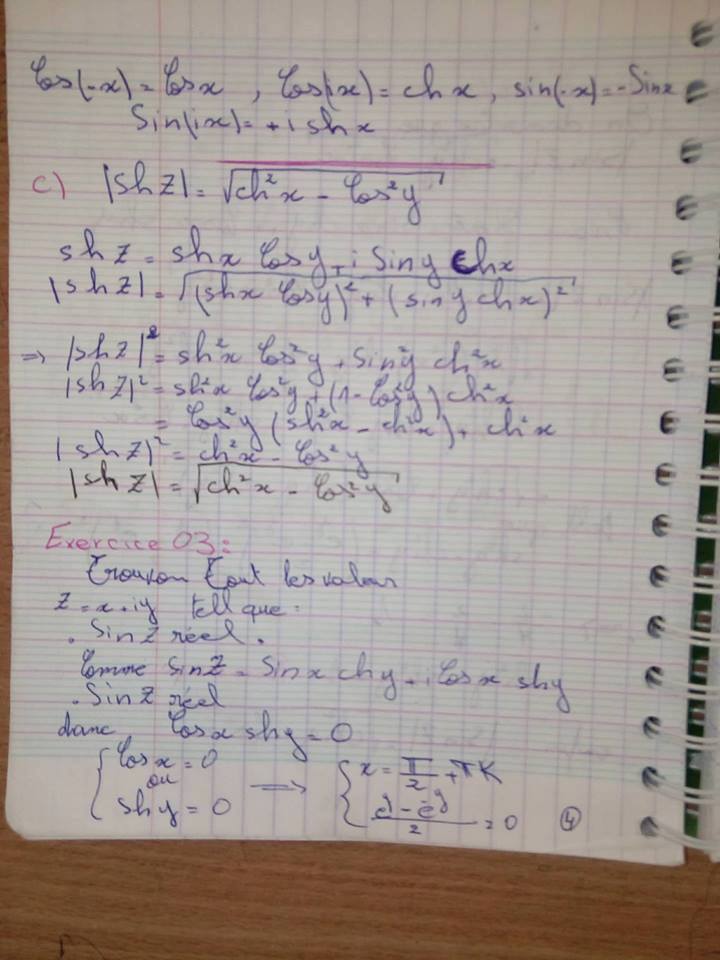 Cos(-x) = Cos x , Cos(ix) = ch x , sin(-x) = -Sin x
Sin(ix) = + i sh x
c) |sh Z| = √(ch²x - Cos²y)
sh Z = sh x Cos y + i Sin y ch x
|sh Z| = √((sh x Cos y)² + (sin y ch x)²)
=> |sh Z|² = sh²x Cos²y + Sin²y ch²x
|sh Z|² = sh²x Cos²y + (1 - Cos²y) ch²x
= Cos²y (sh²x - ch²x) + ch²x
|sh Z|² = ch²x - Cos²y
|sh Z| = √(ch²x - Cos²y)
Exercice 03:
Trouvon tout les valeurs
Z = x + iy tell que :
. Sin Z réel .
Comme Sin Z = Sin x ch y + i Cos x sh y
. Sin Z réel
donc Cos x sh y = 0
{ Cos x = 0 ou sh y = 0 => { x = π/2 + πK
(e^y - e^-y)/2 = 0
4